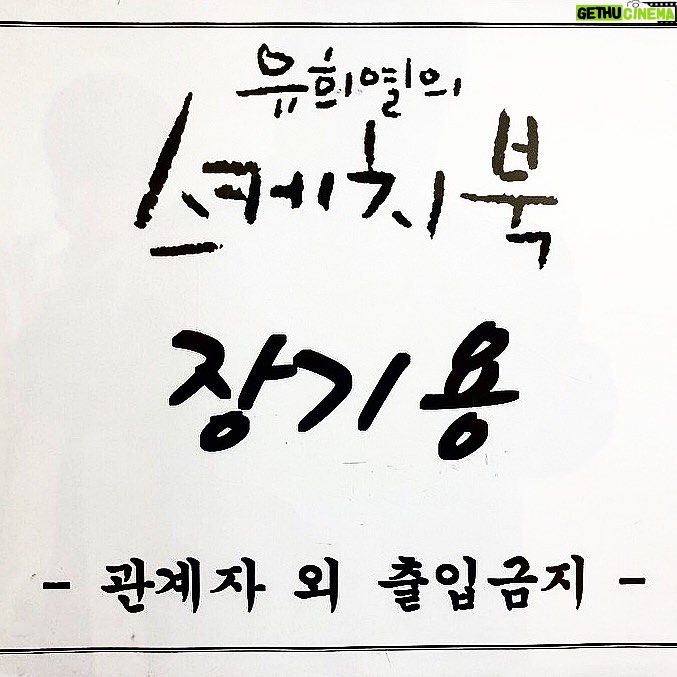 GETHUCINEMA
유희열의
스케치북
장기용
- 관계자 외 출입금지 -